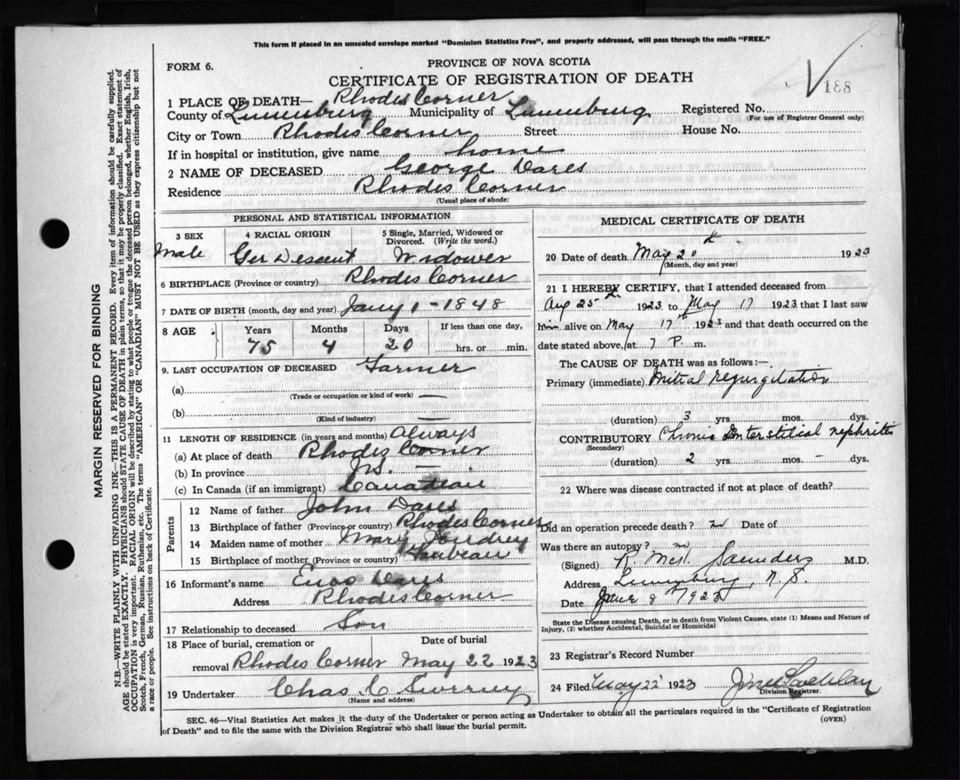 This form if placed in an unsealed envelope marked "Dominion Statistics Free", and properly addressed, will pass through the mails "FREE."
FORM 6.
PROVINCE OF NOVA SCOTIA
CERTIFICATE OF REGISTRATION OF DEATH
188
1 PLACE OF DEATH— Rhodes Corner
County of Lunenburg Municipality of Lunenburg Registered No.
(For use of Registrar General only)
City or Town Rhodes Corner Street House No.
If in hospital or institution, give name home
2 NAME OF DECEASED George Dares
Residence Rhodes Corner
(Usual place of abode)
PERSONAL AND STATISTICAL INFORMATION
3 SEX 4 RACIAL ORIGIN 5 Single, Married, Widowed or Divorced. (Write the word.)
Male Ger Descent Widower
6 BIRTHPLACE (Province or country) Rhodes Corner
7 DATE OF BIRTH (month, day and year) Jany 1 - 1848
8 AGE Years Months Days If less than one day,
75 4 20 hrs. or min.
9. LAST OCCUPATION OF DECEASED Farmer
(a) —
(Trade or occupation or kind of work)
(b) —
(Kind of industry)
11 LENGTH OF RESIDENCE (in years and months) Always
(a) At place of death Rhodes Corner
(b) In province N.S. —
(c) In Canada (if an immigrant) Canadian
Parents
12 Name of father John Dares
13 Birthplace of father (Province or country) Rhodes Corner
14 Maiden name of mother Mary Joudrey
15 Birthplace of mother (Province or country)
16 Informant's name Enos Dares
Address Rhodes Corner
17 Relationship to deceased Son
18 Place of burial, cremation or removal Date of burial
Rhodes Corner May 22 1923
19 Undertaker Chas
(Name and address)
MEDICAL CERTIFICATE OF DEATH
20 Date of death May 20 1923
(Month, day and year)
21 I HEREBY CERTIFY, that I attended deceased from
Aug 25 1923 to May 17 1923 that I last saw
him alive on May 17 1923 and that death occurred on the
date stated above, at 7 P. m.
The CAUSE OF DEATH was as follows:—
Primary (immediate) Mitral regurgitation
(duration) 3 yrs. mos. dys.
CONTRIBUTORY Chronic Interstitial nephritis
(Secondary)
(duration) 2 yrs. mos. dys.
22 Where was disease contracted if not at place of death?
Did an operation precede death? no Date of
Was there an autopsy? no
(Signed) Saunders M.D.
Address Lunenburg, N.S.
Date June 8 1923
State the Disease causing Death, or in death from Violent Causes, state (1) Means and Nature of Injury, (2) whether Accidental, Suicidal or Homicidal
23 Registrar's Record Number
24 Filed May 22 1923
Division Registrar.
SEC. 46—Vital Statistics Act makes it the duty of the Undertaker or person acting as Undertaker to obtain all the particulars required in the "Certificate of Registration
of Death" and to file the same with the Division Registrar who shall issue the burial permit.
(OVER)
MARGIN RESERVED FOR BINDING
N.B.—WRITE PLAINLY WITH UNFADING INK—THIS IS A PERMANENT RECORD. Every item of information should be carefully supplied.
AGE should be stated EXACTLY. PHYSICIANS should STATE CAUSE OF DEATH in plain terms, so that it may be properly classified. Exact statement of
OCCUPATION is very important. RACIAL ORIGIN will be described by stating to what people or tongue the deceased person belonged, whether English, Irish,
Scotch, French, German, Russian, Ruthenian, etc. The terms "AMERICAN" OR "CANADIAN" MUST NOT BE USED as they express citizenship but not
a race or people. See instructions on back of Certificate.